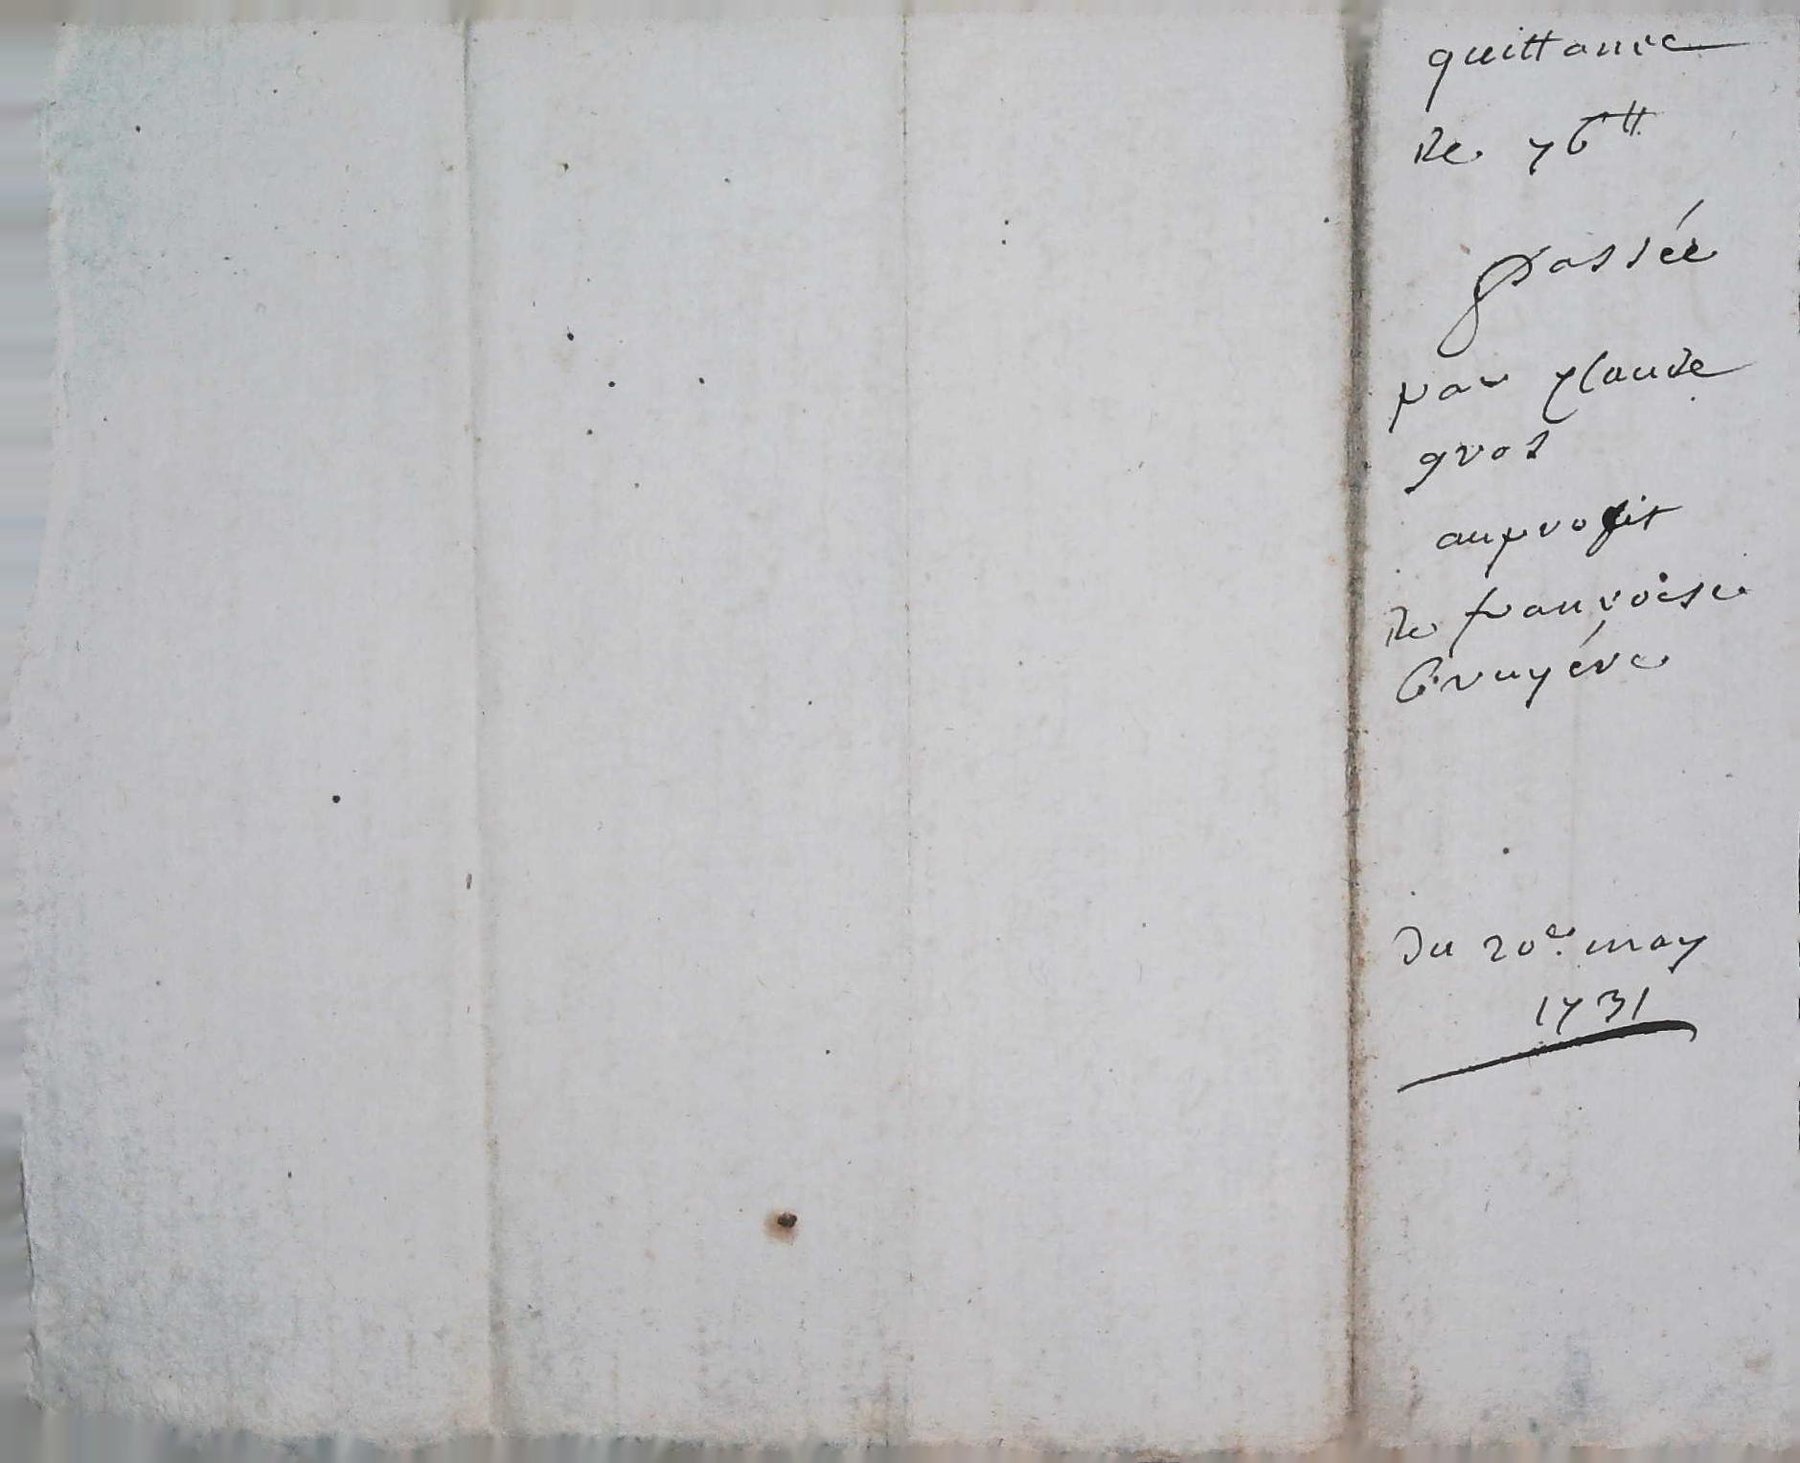 quittance
de 76ᵗᵗ
passée
par claude
gros
au profit
de françoise
bruyére
du 20ᵉ may
1731